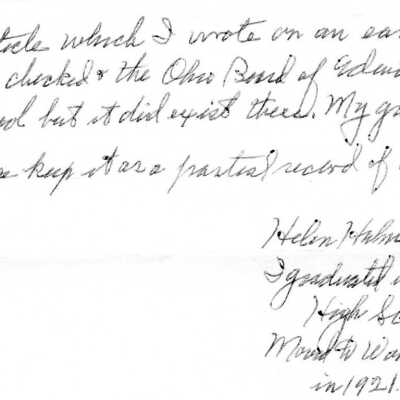 which I wrote on an
checked & the Ohio Board of
but it did exist there. My
keep it as a partial record of
Helen
I graduated
High
Moved to
in 1921.